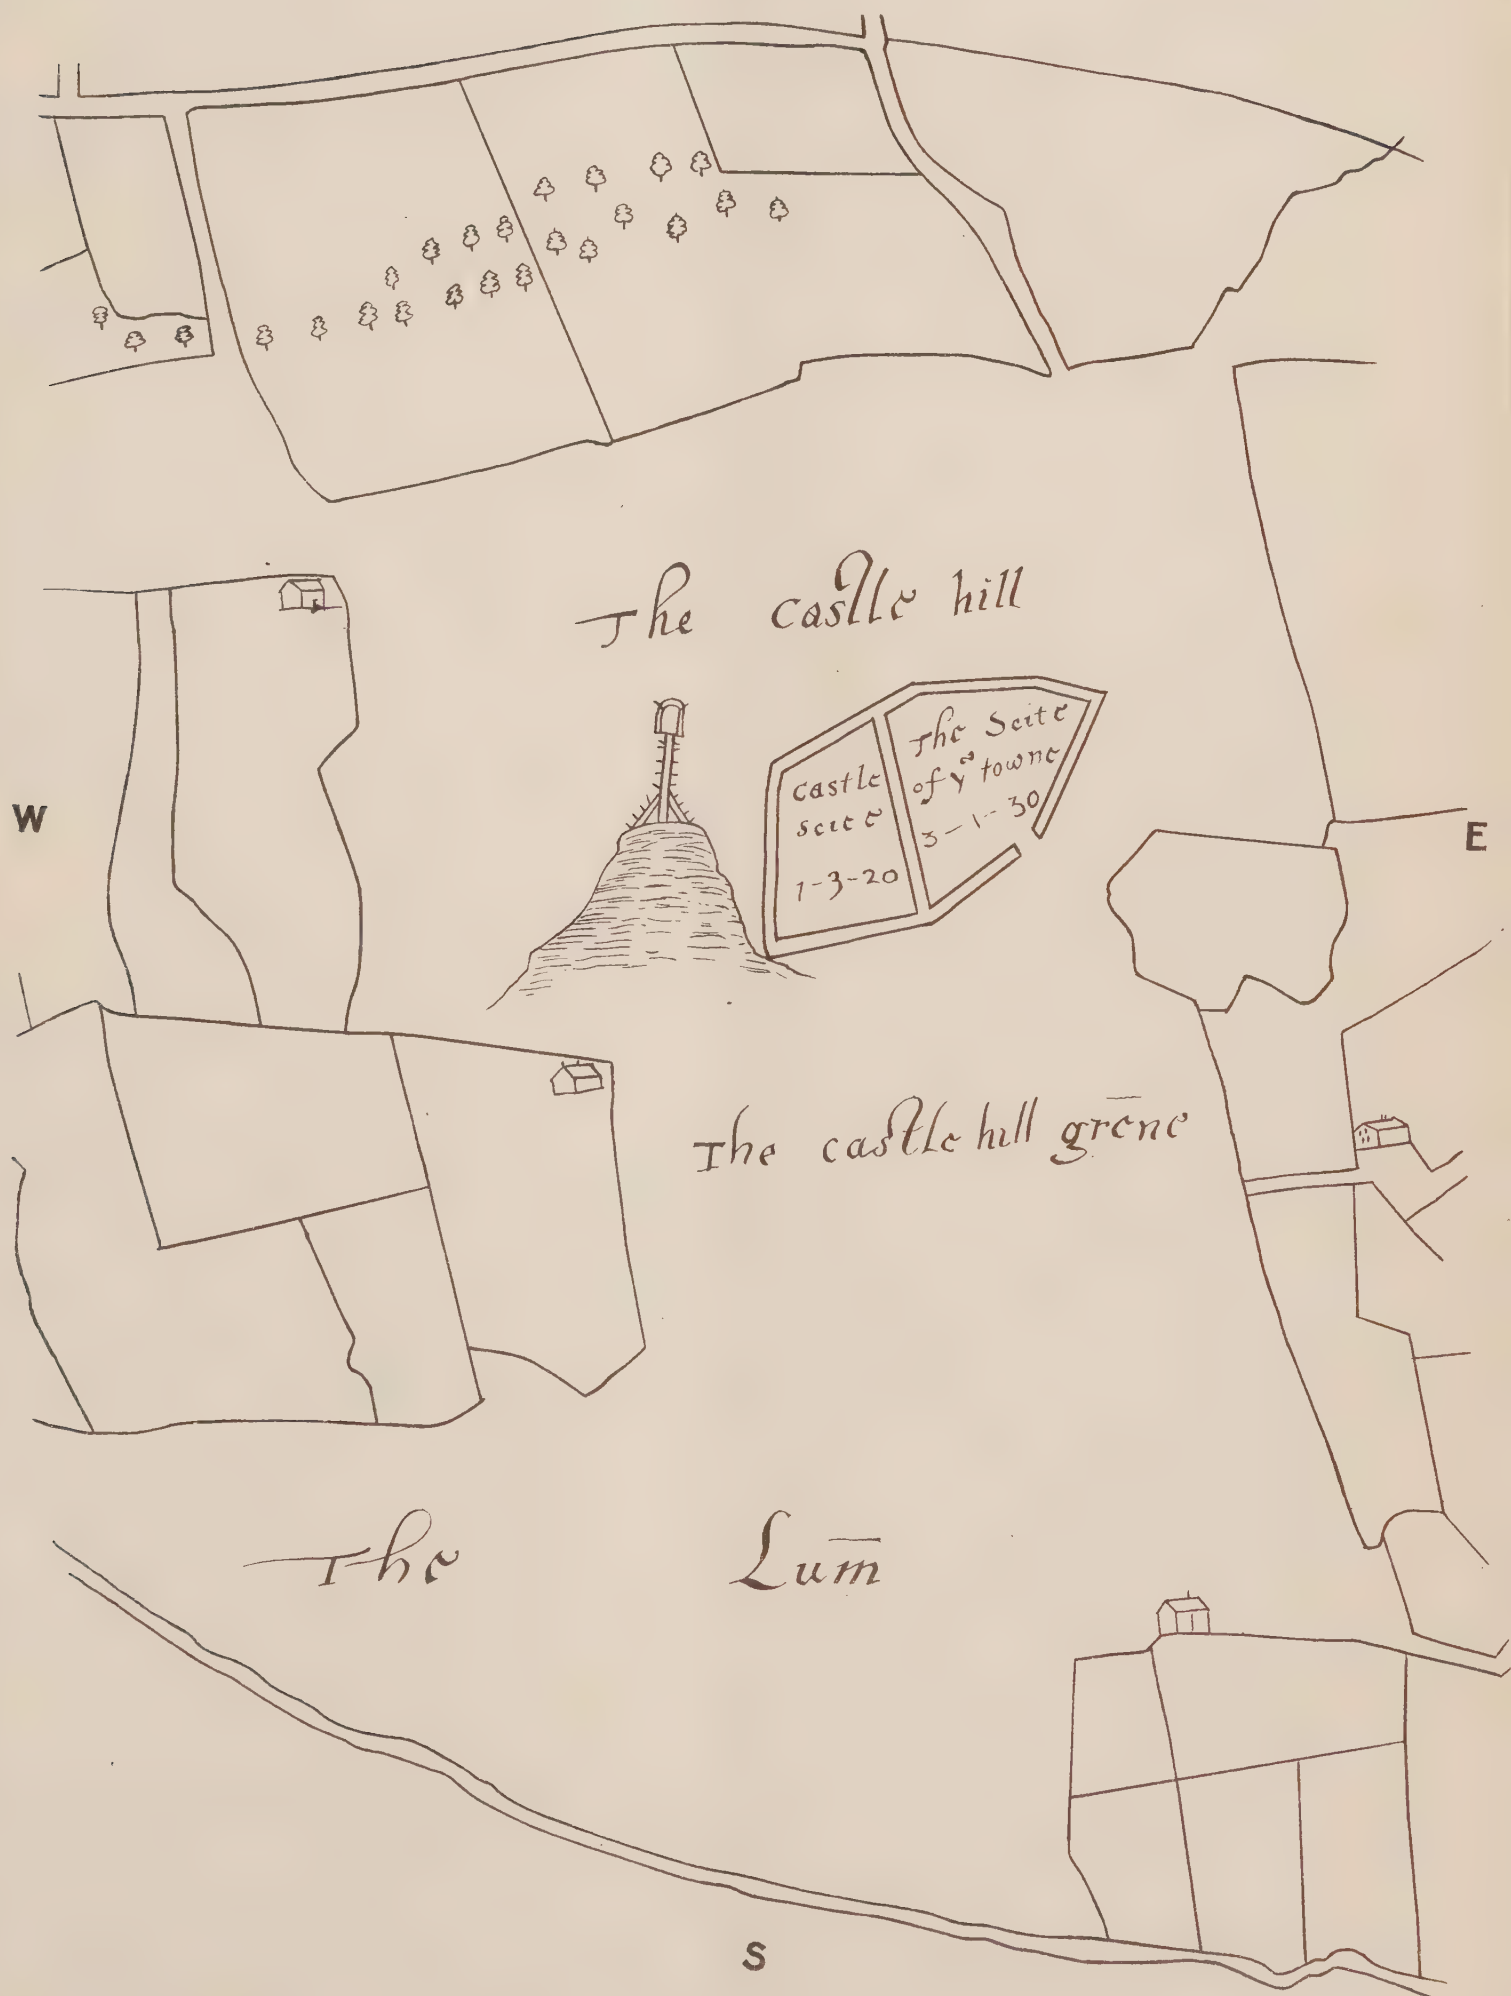 The castle hill
castle
scite
1-3-20
The Scite
of yᵉ towne
3-1-30
W
E
The castle hill grēne
The Lum̄
S